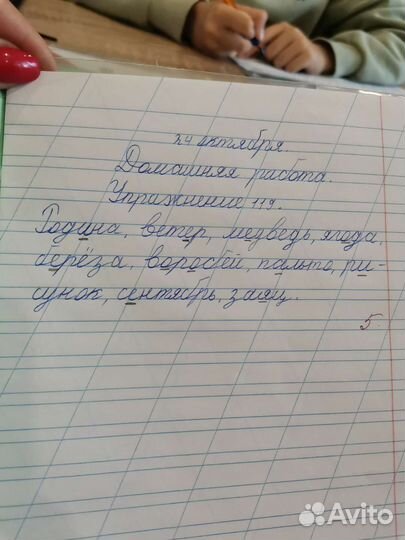 24 октября
Домашняя работа.
Упражнение 119.
Родина, ветер, медведь, ягода,
берёза, воробей, пальто, ри-
сунок, сентябрь, заяц.
5
Avito